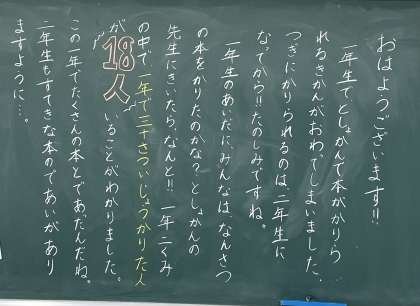 おはようございます!!
一年生でとしょかんで本がかりら
れるきかんがおわってしまいました。
つぎにかりられるのは、二年生に
なってから!!たのしみですね。
一年生のあいだに、みんなは、なんさつ
の本をかりたのかな?としょかんの
先生にきいたら、なんと!!一年二くみ
の中で、一年で三十さついじょうかりた人
が18人いることがわかりました。
この一年でたくさんの本とであったんだね。
二年生もすてきな本のであいがあり
ますように…。